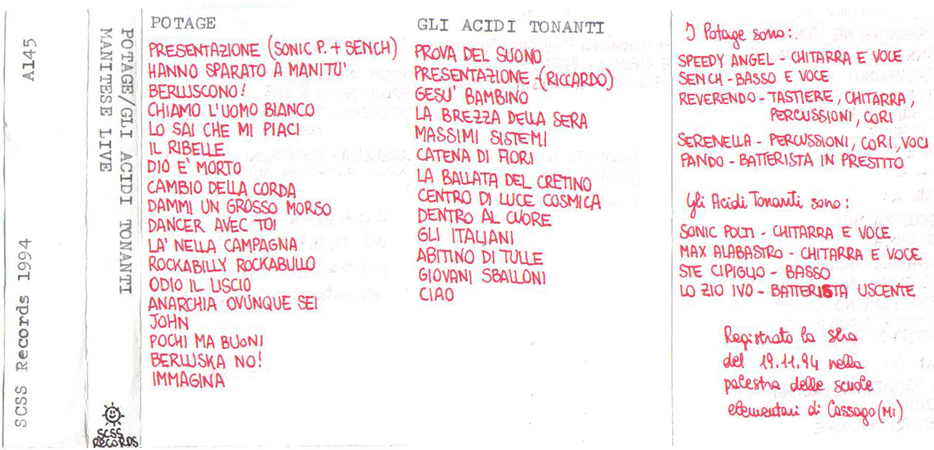 A145
SCSS Records 1994
POTAGE/GLI ACIDI TONANTI
MANITESE LIVE
SCSS
RECORDS
POTAGE
PRESENTAZIONE (SONIC P. + SENCH)
HANNO SPARATO A MANITU'
BERLUSCONO!
CHIAMO L'UOMO BIANCO
LO SAI CHE MI PIACI
IL RIBELLE
DIO E' MORTO
CAMBIO DELLA CORDA
DAMMI UN GROSSO MORSO
DANCER AVEC TOI
LA' NELLA CAMPAGNA
ROCKABILLY ROCKABULLO
ODIO IL LISCIO
ANARCHIA OVUNQUE SEI
JOHN
POCHI MA BUONI
BERLUSKA NO!
IMMAGINA
GLI ACIDI TONANTI
PROVA DEL SUONO
PRESENTAZIONE -(RICCARDO)
GESU' BAMBINO
LA BREZZA DELLA SERA
MASSIMI SISTEMI
CATENA DI FIORI
LA BALLATA DEL CRETINO
CENTRO DI LUCE COSMICA
DENTRO AL CUORE
GLI ITALIANI
ABITINO DI TULLE
GIOVANI SBALLONI
CIAO
I Potage sono:
SPEEDY ANGEL - CHITARRA E VOCE
SENCH - BASSO E VOCE
REVERENDO - TASTIERE, CHITARRA,
PERCUSSIONI, CORI
SERENELLA - PERCUSSIONI, CORI, VOCI
PANDO - BATTERISTA IN PRESTITO
Gli Acidi Tonanti sono:
SONIC POLTI - CHITARRA E VOCE
MAX ALABASTRO - CHITARRA E VOCE
STE CIPIGLIO - BASSO
LO ZIO IVO - BATTERISTA USCENTE
Registrato la sera
del 19.11.94 nella
palestra delle scuole
elementari di Cassago (MI)